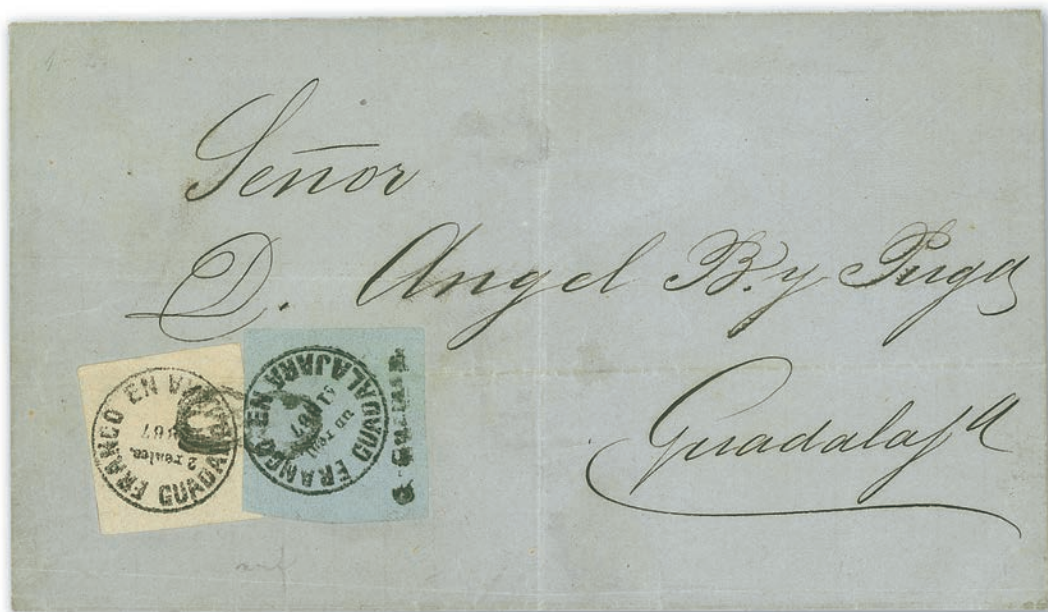 Señor
D. Angel B. y Puga
Guadalaja
FRANCO EN GUADALAJARA
867
2 reales
FRANCO EN GUADALAJARA
1867
un real